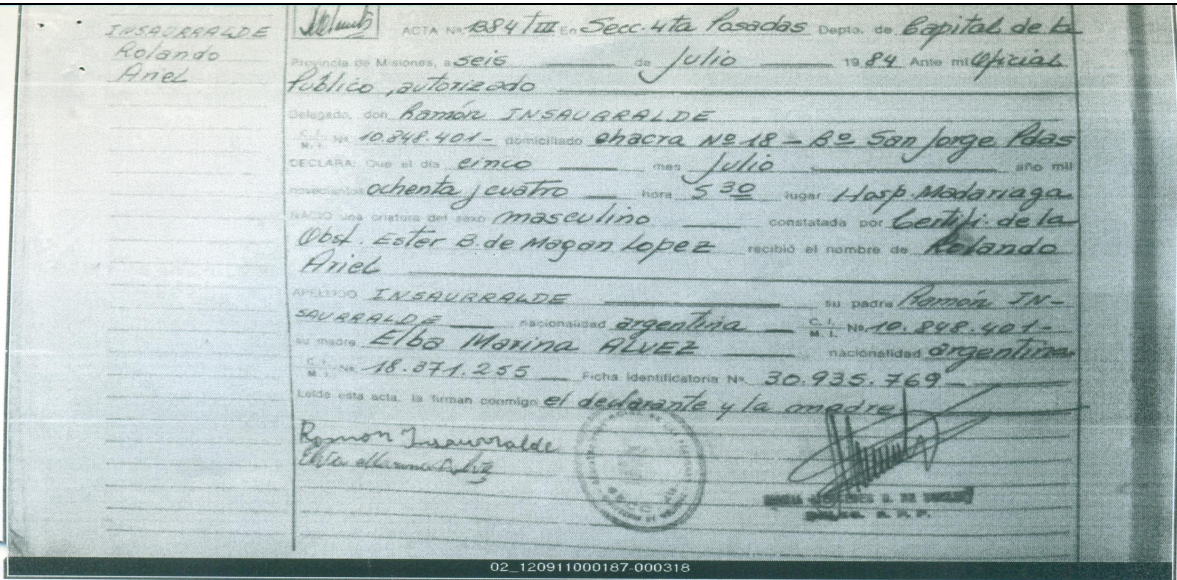 INSAURRALDE
Rolando
Ariel
ACTA Nº 1384 TIII En Secc. 4ta Posadas Depto. de Capital de la
Provincia de Misiones, a seis de Julio 1984 Ante mi Oficial
Público, autorizado
Delegado, don Ramón INSAURRALDE
C. I. M. I. Nº 10.848.401- domiciliado chacra Nº 18 - Bº San Jorge Pdas
DECLARA: Que el día cinco mes Julio año mil
novecientos ochenta y cuatro hora 5 30 lugar Hosp. Madariaga
NACIO una criatura del sexo masculino constatada por Certifi. de la
Obst. Ester B. de Magan Lopez recibió el nombre de Rolando
Ariel
APELLIDO INSAURRALDE su padre Ramón IN-
SAURRALDE nacionalidad argentina C. I. M. I. Nº 10.848.401-
su madre Elba Marina ALVEZ nacionalidad argentina
C. I. M. I. Nº 18.371.255 Ficha Identificatoria Nº 30.935.769-
Leída esta acta, la firman conmigo el declarante y la madre
Ramon Insaurralde
02_120911000187-000318